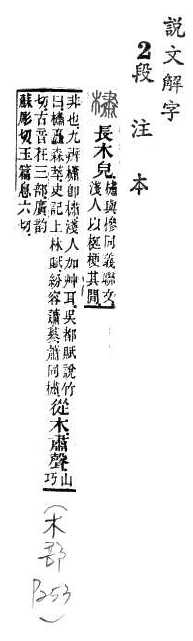 説文解字
2段注本
橚 長木皃 橚與槮同義聯文
淺人以梃梗其閒
非也九辨櫹即橚淺人加艸耳吳都賦說竹
曰橚矗森萃史記上林賦紛容蕭蔘蕭同橚 從木肅聲 山
巧
切古音在三部廣韵
蘇彫切玉篇息六切
(木部 P253)